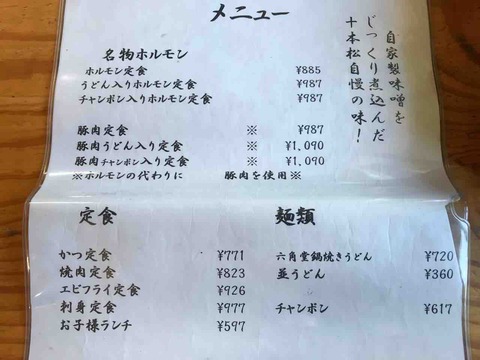 メニュー
自家製味噌を
じっくり煮込んだ
十本松自慢の味！
名物ホルモン
ホルモン定食 ¥885
うどん入りホルモン定食 ¥987
チャンポン入りホルモン定食 ¥987
豚肉定食 ※ ¥987
豚肉うどん入り定食 ※ ¥1,090
豚肉チャンポン入り定食 ※ ¥1,090
※ホルモンの代わりに 豚肉を使用※
定食
かつ定食 ¥771
焼肉定食 ¥823
エビフライ定食 ¥926
刺身定食 ¥977
お子様ランチ ¥597
麺類
六角堂鍋焼きうどん ¥720
並うどん ¥360
チャンポン ¥617